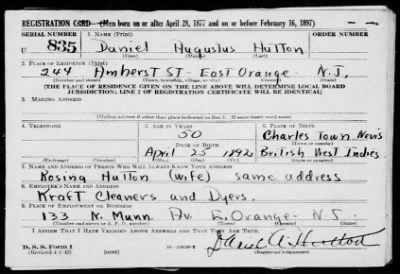 REGISTRATION CARD—(Men born on or after April 28, 1877 and on or before February 16, 1897)
SERIAL NUMBER 1. NAME (Print) ORDER NUMBER
U 835 Daniel Augustus Hutton
(First) (Middle) (Last)
2. PLACE OF RESIDENCE (Print)
244 Amherst St - East Orange - N.J.
[THE PLACE OF RESIDENCE GIVEN ON THE LINE ABOVE WILL DETERMINE LOCAL BOARD
JURISDICTION; LINE 2 OF REGISTRATION CERTIFICATE WILL BE IDENTICAL]
3. MAILING ADDRESS
[Mailing address if other than place indicated on line 2. If same insert word same]
4. TELEPHONE 5. AGE IN YEARS 6. PLACE OF BIRTH
50 Charles Town. Nevis
DATE OF BIRTH (Town or county)
April 25 1892 British West Indies
(Exchange) (Number) (Mo.) (Day) (Yr.) (State or country)
7. NAME AND ADDRESS OF PERSON WHO WILL ALWAYS KNOW YOUR ADDRESS
Rosina Hutton (wife) same address
8. EMPLOYER'S NAME AND ADDRESS
Kraft Cleaners and Dyers.
9. PLACE OF EMPLOYMENT OR BUSINESS
133 N. Munn Av. E. Orange - N.J.
(Number and street or R. F. D. number) (Town) (County) (State)
I AFFIRM THAT I HAVE VERIFIED ABOVE ANSWERS AND THAT THEY ARE TRUE.
D. S. S. Form 1
(Revised 4-1-42) (over)
Daniel A. Hutton
(Registrant's signature)